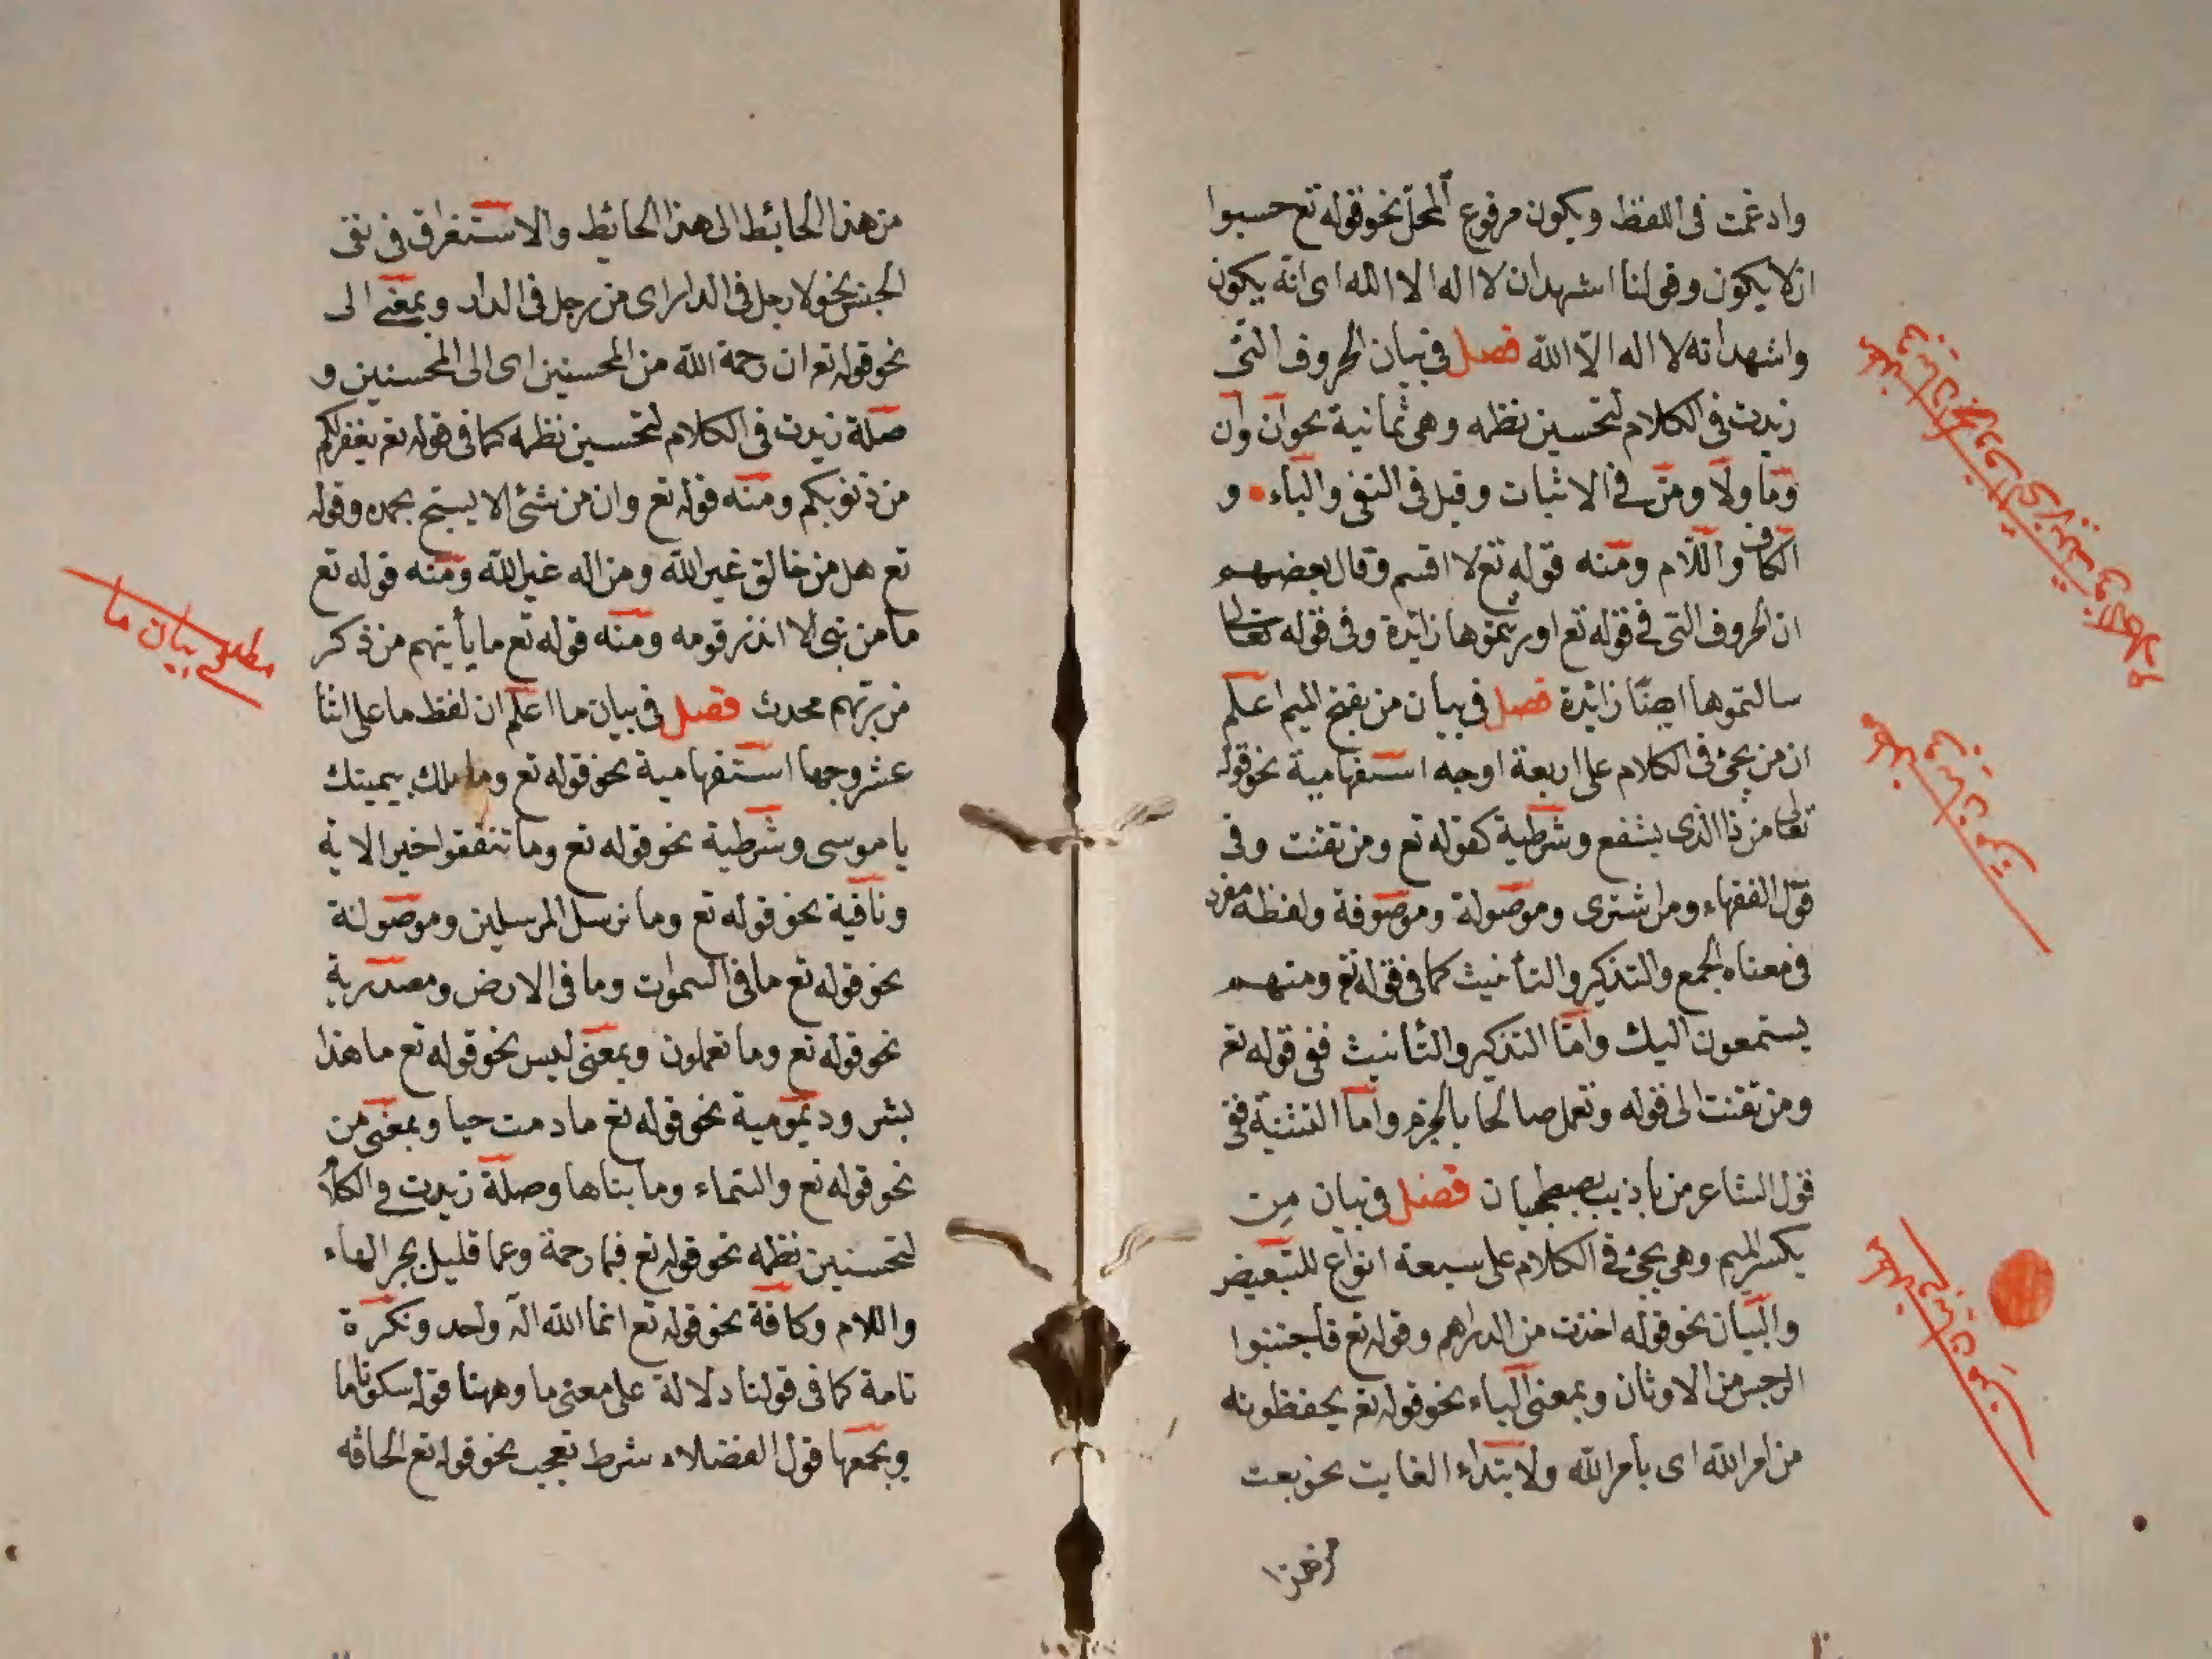 وادغمت فى اللفظ ويكون مرفوع المحل نحو قوله تع حسبوا
ان لا يكون وقولنا اشهد ان لا اله الا الله اى انه يكون
واشهد انه لا اله الا الله فصل فى بيان الحروف التى
زيدت فى الكلام لتحسين نظمه وهى ثمانية نحو ان وان
وما ولا ومن فى الاثبات وقيل فى النفى والباء و
الكاف واللام ومنه قوله تع لا اقسم وقال بعضهم
ان الحروف التى فى قوله تع اورثتموها زائدة وفى قوله تعالى
سالتموها ايضا زائدة فصل فى بيان من بفتح الميم اعلم
ان من يجئ فى الكلام على اربعة اوجه استفهامية نحو قوله
تعالى من ذا الذى يشفع وشرطية كقوله تع ومن تقنت وفى
قول الفقهاء ومن اشترى وموصولة وموصوفة ولفظه مفرد
فى معناه الجمع والتذكير والتأنيث كما فى قوله تع ومنهم
يستمعون اليك واما التذكير والتأنيث ففى قوله تع
ومن تقنت الى قوله وتعمل صالحا بالجزم واما التثنية ففى
قول الشاعر من يا ذيب يصطحبان فصل فى بيان مِن
بكسر الميم وهى يجئ فى الكلام على سبعة انواع للتبعيض
والبيان نحو قوله اخذت من الدراهم وقوله تع فاجتنبوا
الرجس من الاوثان وبمعنى الباء نحو قوله تع يحفظونه
من امر الله اى بأمر الله ولابتداء الغايت نحو بعت
من هذا
مطلب بيان من
من هذا الحائط الى هذا الحائط والاستغراق فى نفى
الجنس نحو لا رجل فى الدار اى من رجل فى الدار وبمعنى الى
نحو قوله تع ان رحمة الله من المحسنين اى الى المحسنين و
صلة زيدت فى الكلام لتحسين نظمه كما فى قوله تع يغفر لكم
من ذنوبكم ومنه قوله تع وان من شئ الا يسبح بحمده وقوله
تع هل من خالق غير الله ومن اله غير الله ومنه قوله تع
ما من نبى الا انذر قومه ومنه قوله تع ما يأتيهم من ذكر
من ربهم محدث فصل فى بيان ما اعلم ان لفظ ما على اثنا
عشر وجها استفهامية نحو قوله تع وما تلك بيمينك
يا موسى وشرطية نحو قوله تع وما تنفقوا خير الاية
ونافية نحو قوله تع وما نرسل المرسلين وموصولة
نحو قوله تع ما فى السموات وما فى الارض ومصدرية
نحو قوله تع وما تعملون وبمعنى ليس نحو قوله تع ما هذا
بشر وديمومية نحو قوله تع ما دمت حيا وبمعنى من
نحو قوله تع والسماء وما بناها وصلة زيدت فى الكلا
لتحسين نظمه نحو قوله تع فبما رحمة وعما قليل بجر الهاء
واللام وكافة نحو قوله تع انما الله اله واحد ونكرة
تامة كما فى قولنا دلالة على معنى ما وههنا قوله سكوتا ما
ويجمعها قول الفضلاء شرط تعجب نحو قوله تع الحاقه
مطلب بيان ما